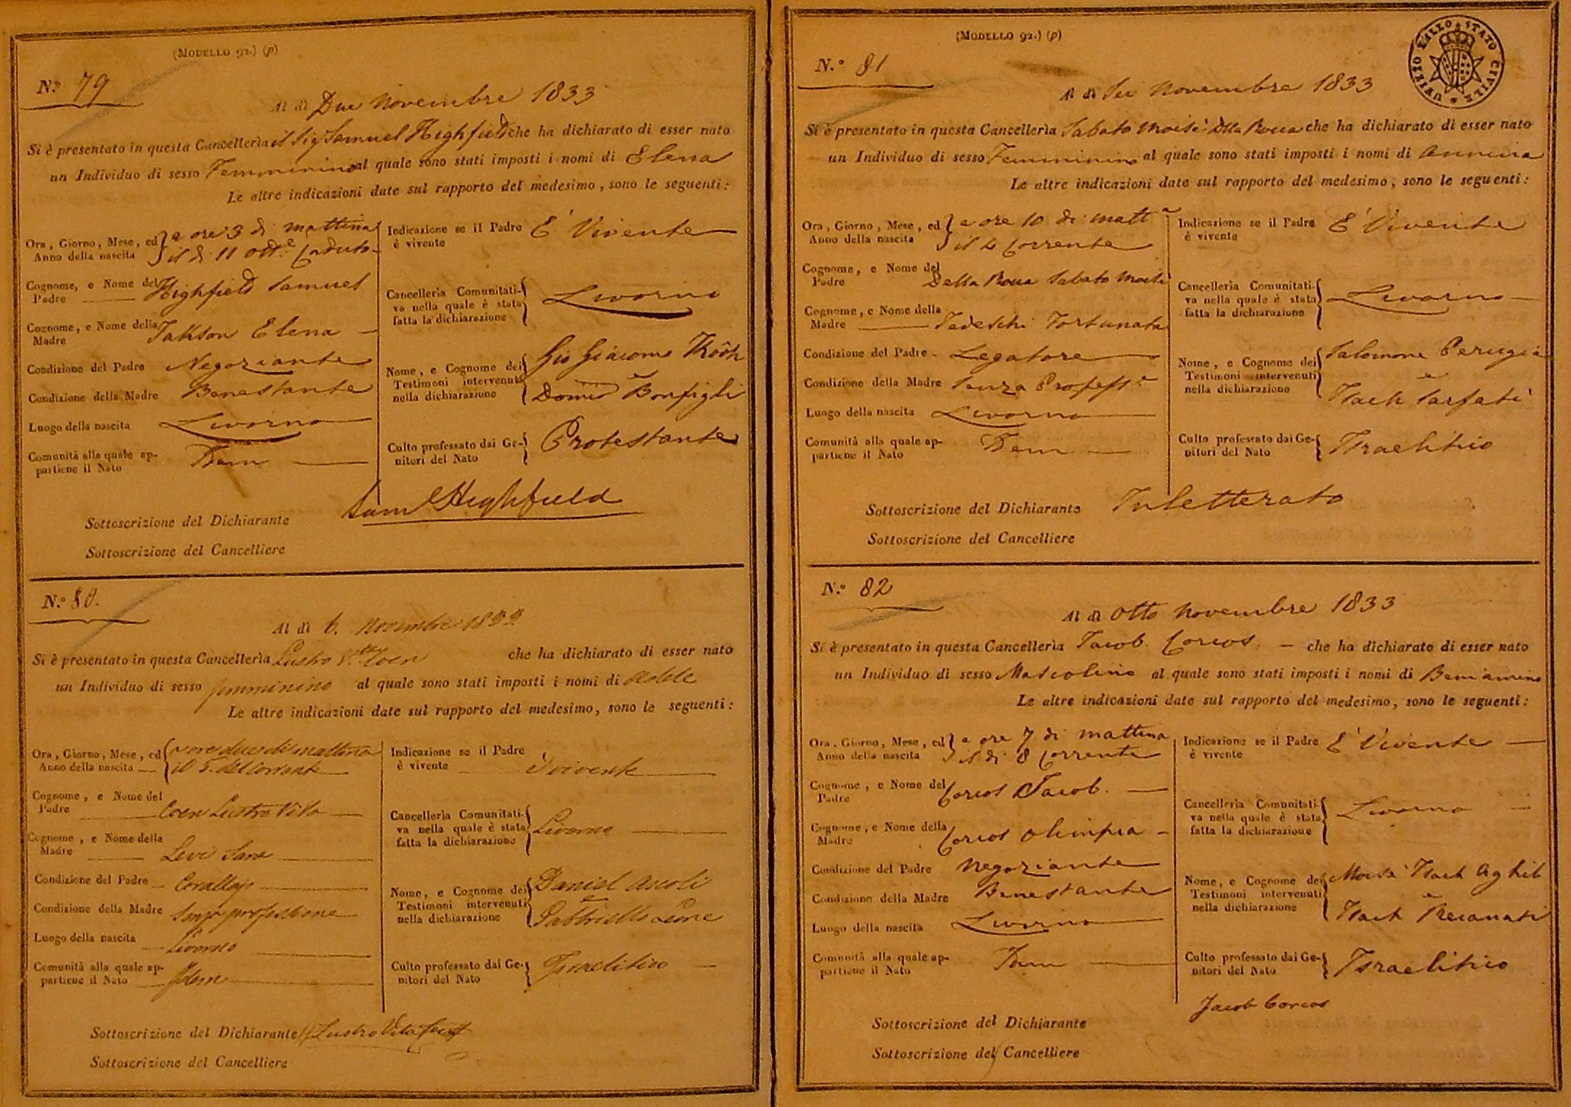 (Modello 92.) (p)
N.º 79
Al dì Due Novembre 1833
Si è presentato in questa Cancelleria il Sig Samuel Highfield che ha dichiarato di esser nato
un Individuo di sesso Femminino al quale sono stati imposti i nomi di Elena
Le altre indicazioni date sul rapporto del medesimo, sono le seguenti:
Ora, Giorno, Mese, ed Anno della nascita } a ore 3 di mattina
il dì 11 ott.e Caduto
Cognome, e Nome del Padre Highfield Samuel
Cognome, e Nome della Madre Jakson Elena
Condizione del Padre Negoziante
Condizione della Madre Benestante
Luogo della nascita Livorno
Comunità alla quale appartiene il Nato Idem
Indicazione se il Padre è vivente E' Vivente
Cancelleria Comunitativa nella quale è stata fatta la dichiarazione } Livorno
Nome, e Cognome dei Testimoni intervenuti nella dichiarazione { Gio Giacomo
e
Bonfigli
Culto professato dai Genitori del Nato { Protestante
Sottoscrizione del Dichiarante Sam Highfield
Sottoscrizione del Cancelliere
N.º 80.
Al dì 6. Novembre 1833
Si è presentato in questa Cancelleria Lustro Coen che ha dichiarato di esser nato
un Individuo di sesso femminino al quale sono stati imposti i nomi di Adele
Le altre indicazioni date sul rapporto del medesimo, sono le seguenti:
Ora, Giorno, Mese, ed Anno della nascita { a ore dieci di mattina
il 5. del Corrente
Cognome, e Nome del Padre Coen Lustro Vita
Cognome, e Nome della Madre Levi Sara
Condizione del Padre Corallajo
Condizione della Madre Senza professione
Luogo della nascita Livorno
Comunità alla quale appartiene il Nato Idem
Indicazione se il Padre è vivente è vivente
Cancelleria Comunitativa nella quale è stata fatta la dichiarazione { Livorno
Nome, e Cognome dei Testimoni intervenuti nella dichiarazione { Daniel Ascoli
e
Gabriello Leone
Culto professato dai Genitori del Nato { Israelitico
Sottoscrizione del Dichiarante Lustro Vita
Sottoscrizione del Cancelliere
(Modello 92.) (p)
UFIZIO DELLO STATO CIVILE
N.º 81
Al dì Sei Novembre 1833
Si è presentato in questa Cancelleria Sabato Moisè Della Rocca che ha dichiarato di esser nato
un Individuo di sesso Femminino al quale sono stati imposti i nomi di Annina
Le altre indicazioni date sul rapporto del medesimo, sono le seguenti:
Ora, Giorno, Mese, ed Anno della nascita } a ore 10 di matt.a
il 4 Corrente
Cognome, e Nome del Padre Della Rocca Sabato Moisè
Cognome, e Nome della Madre Tedeschi Fortunata
Condizione del Padre Legatore
Condizione della Madre Senza Profess.e
Luogo della nascita Livorno
Comunità alla quale appartiene il Nato Idem
Indicazione se il Padre è vivente E' Vivente
Cancelleria Comunitativa nella quale è stata fatta la dichiarazione { Livorno
Nome, e Cognome dei Testimoni intervenuti nella dichiarazione { Salomone Perugia
e
Isach Sarfati
Culto professato dai Genitori del Nato { Israelitico
Sottoscrizione del Dichiarante Inletterato
Sottoscrizione del Cancelliere
N.º 82
Al dì Otto Novembre 1833
Si è presentato in questa Cancelleria Jacob Corcos che ha dichiarato di esser nato
un Individuo di sesso Mascolino al quale sono stati imposti i nomi di Beniamino
Le altre indicazioni date sul rapporto del medesimo, sono le seguenti:
Ora, Giorno, Mese, ed Anno della nascita } a ore 7 di mattina
il dì 8 Corrente
Cognome, e Nome del Padre Corcos Jacob.
Cognome, e Nome della Madre Corcos Olimpia
Condizione del Padre Negoziante
Condizione della Madre Benestante
Luogo della nascita Livorno
Comunità alla quale appartiene il Nato Idem
Indicazione se il Padre è vivente E' Vivente
Cancelleria Comunitativa nella quale è stata fatta la dichiarazione { Livorno
Nome, e Cognome dei Testimoni intervenuti nella dichiarazione { Moisè Isach Aghib
e
Isach Recanati
Culto professato dai Genitori del Nato { Israelitico
Jacob Corcos
Sottoscrizione del Dichiarante
Sottoscrizione del Cancelliere